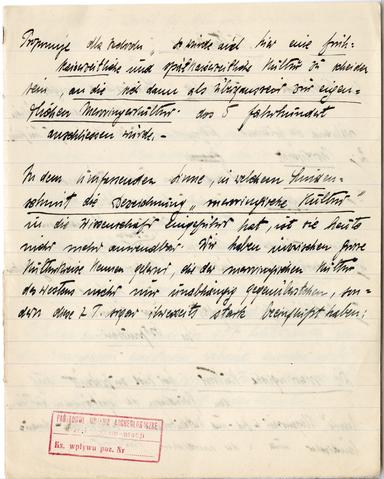 Proponuje dla zachodu „es würde sich hier eine früh-
kaiserzeitliche und spätkaiserzeitliche Kultur zu scheiden
sein, an die sich dann als Übergangs zur eigen-
tlichen Merowingerkultur das 5 Jahrhundert
anschliessen würde.-
In dem umfassenden Sinne, in welchem Linden-
schmit die Bezeichnung „merowingische Kultur"
in die Wissenschaft eingeführt hat, ist sie heute
nicht mehr anwendbar. Wir haben inzwischen
Kulturkreise kennen gelernt, die der merowingischen Kultur
des Westens nicht nur unabhängig gegenüberstehen, son-
dern diese z T. sogar ihrerseits stark beeinflusst haben;
PAŃSTWOWE MUZEUM ARCHEOLOGICZNE
Ks. wpływu poz. Nr